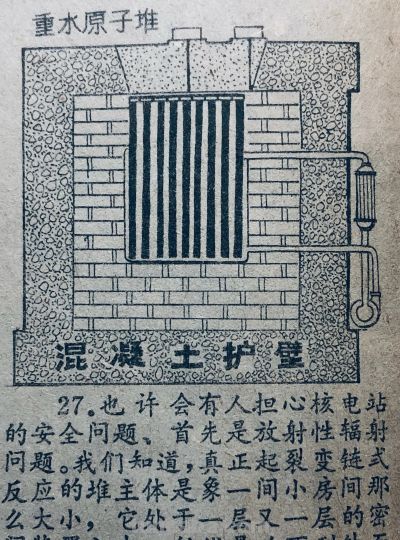 重水原子堆
混凝土护壁
27。也许会有人担心核电站
的安全问题、首先是放射性辐射
问题。我们知道，真正起裂变链式
反应的堆主体是象一间小房间那
么大小，它处于一层又一层的密